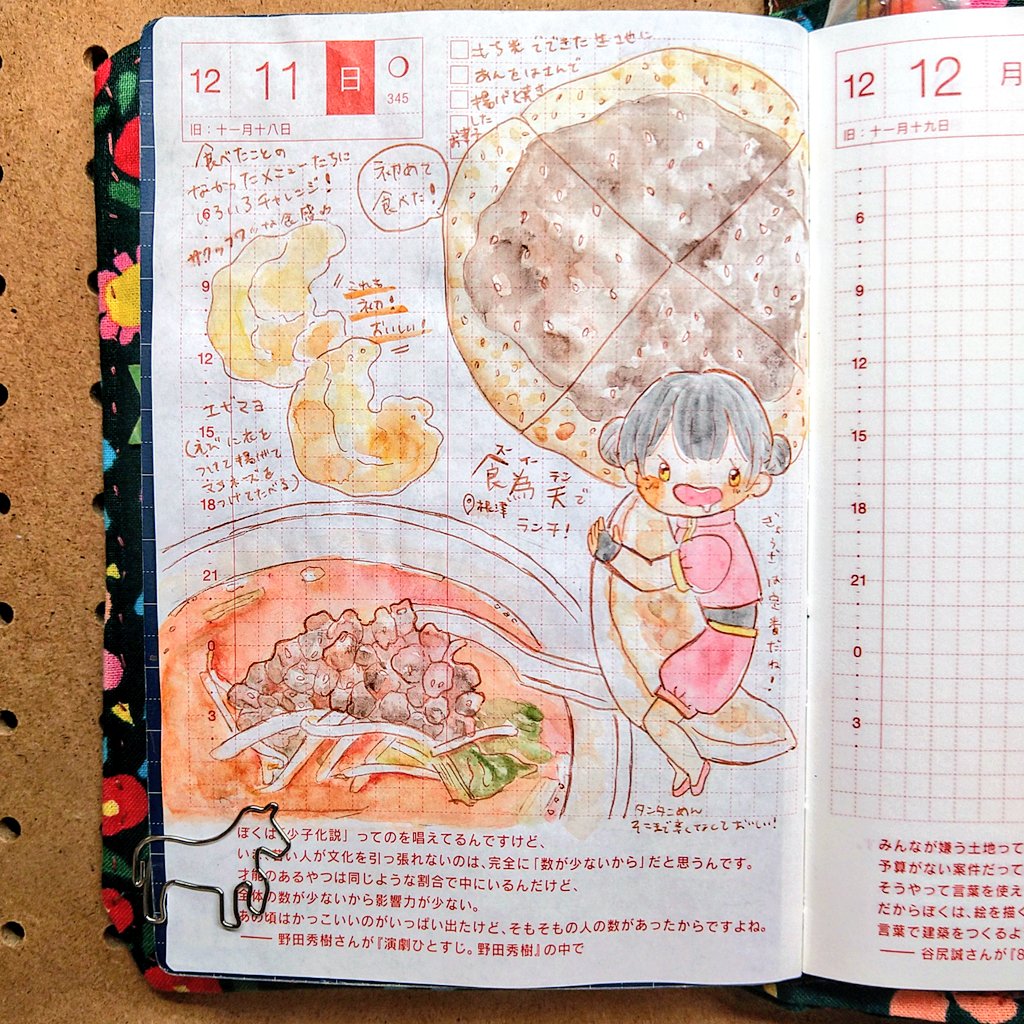 12 11 日
345
旧:十一月十八日
もち米でできた生地に
あんをはさんで
揚げ焼き
した
お菓子
食べたことの
なかったメニューたちに
いろいろチャレンジ!
サクッフワッな食感
初めて
食べた!
これも
初!
おいしい!
エビマヨ
(えびに衣を
つけて揚げて
マヨネーズを
つけてたべる)
スーイーテン
食為天で
根津
ランチ!
ぎょうざは定番だね!
タンタンめん
そこまで辛くなくしておいしい!
6
9
12
15
18
21
0
3
ぼくは「少子化説」ってのを唱えてるんですけど、
い い人が文化を引っ張れないのは、完全に「数が少ないから」だと思うんです。
才能のあるやつは同じような割合で中にいるんだけど、
全体の数が少ないから影響力が少ない。
あの頃はかっこいいのがいっぱい出たけど、そもそもの人の数があったからですよね。
── 野田秀樹さんが『演劇ひとすじ。野田秀樹』の中で
12 12 月
旧:十一月十九日
6
9
12
15
18
21
0
3
みんなが嫌う土地って
予算がない案件だって
そうやって言葉を使え
だからぼくは、絵を描く
言葉で建築をつくるよ
── 谷尻誠さんが『8